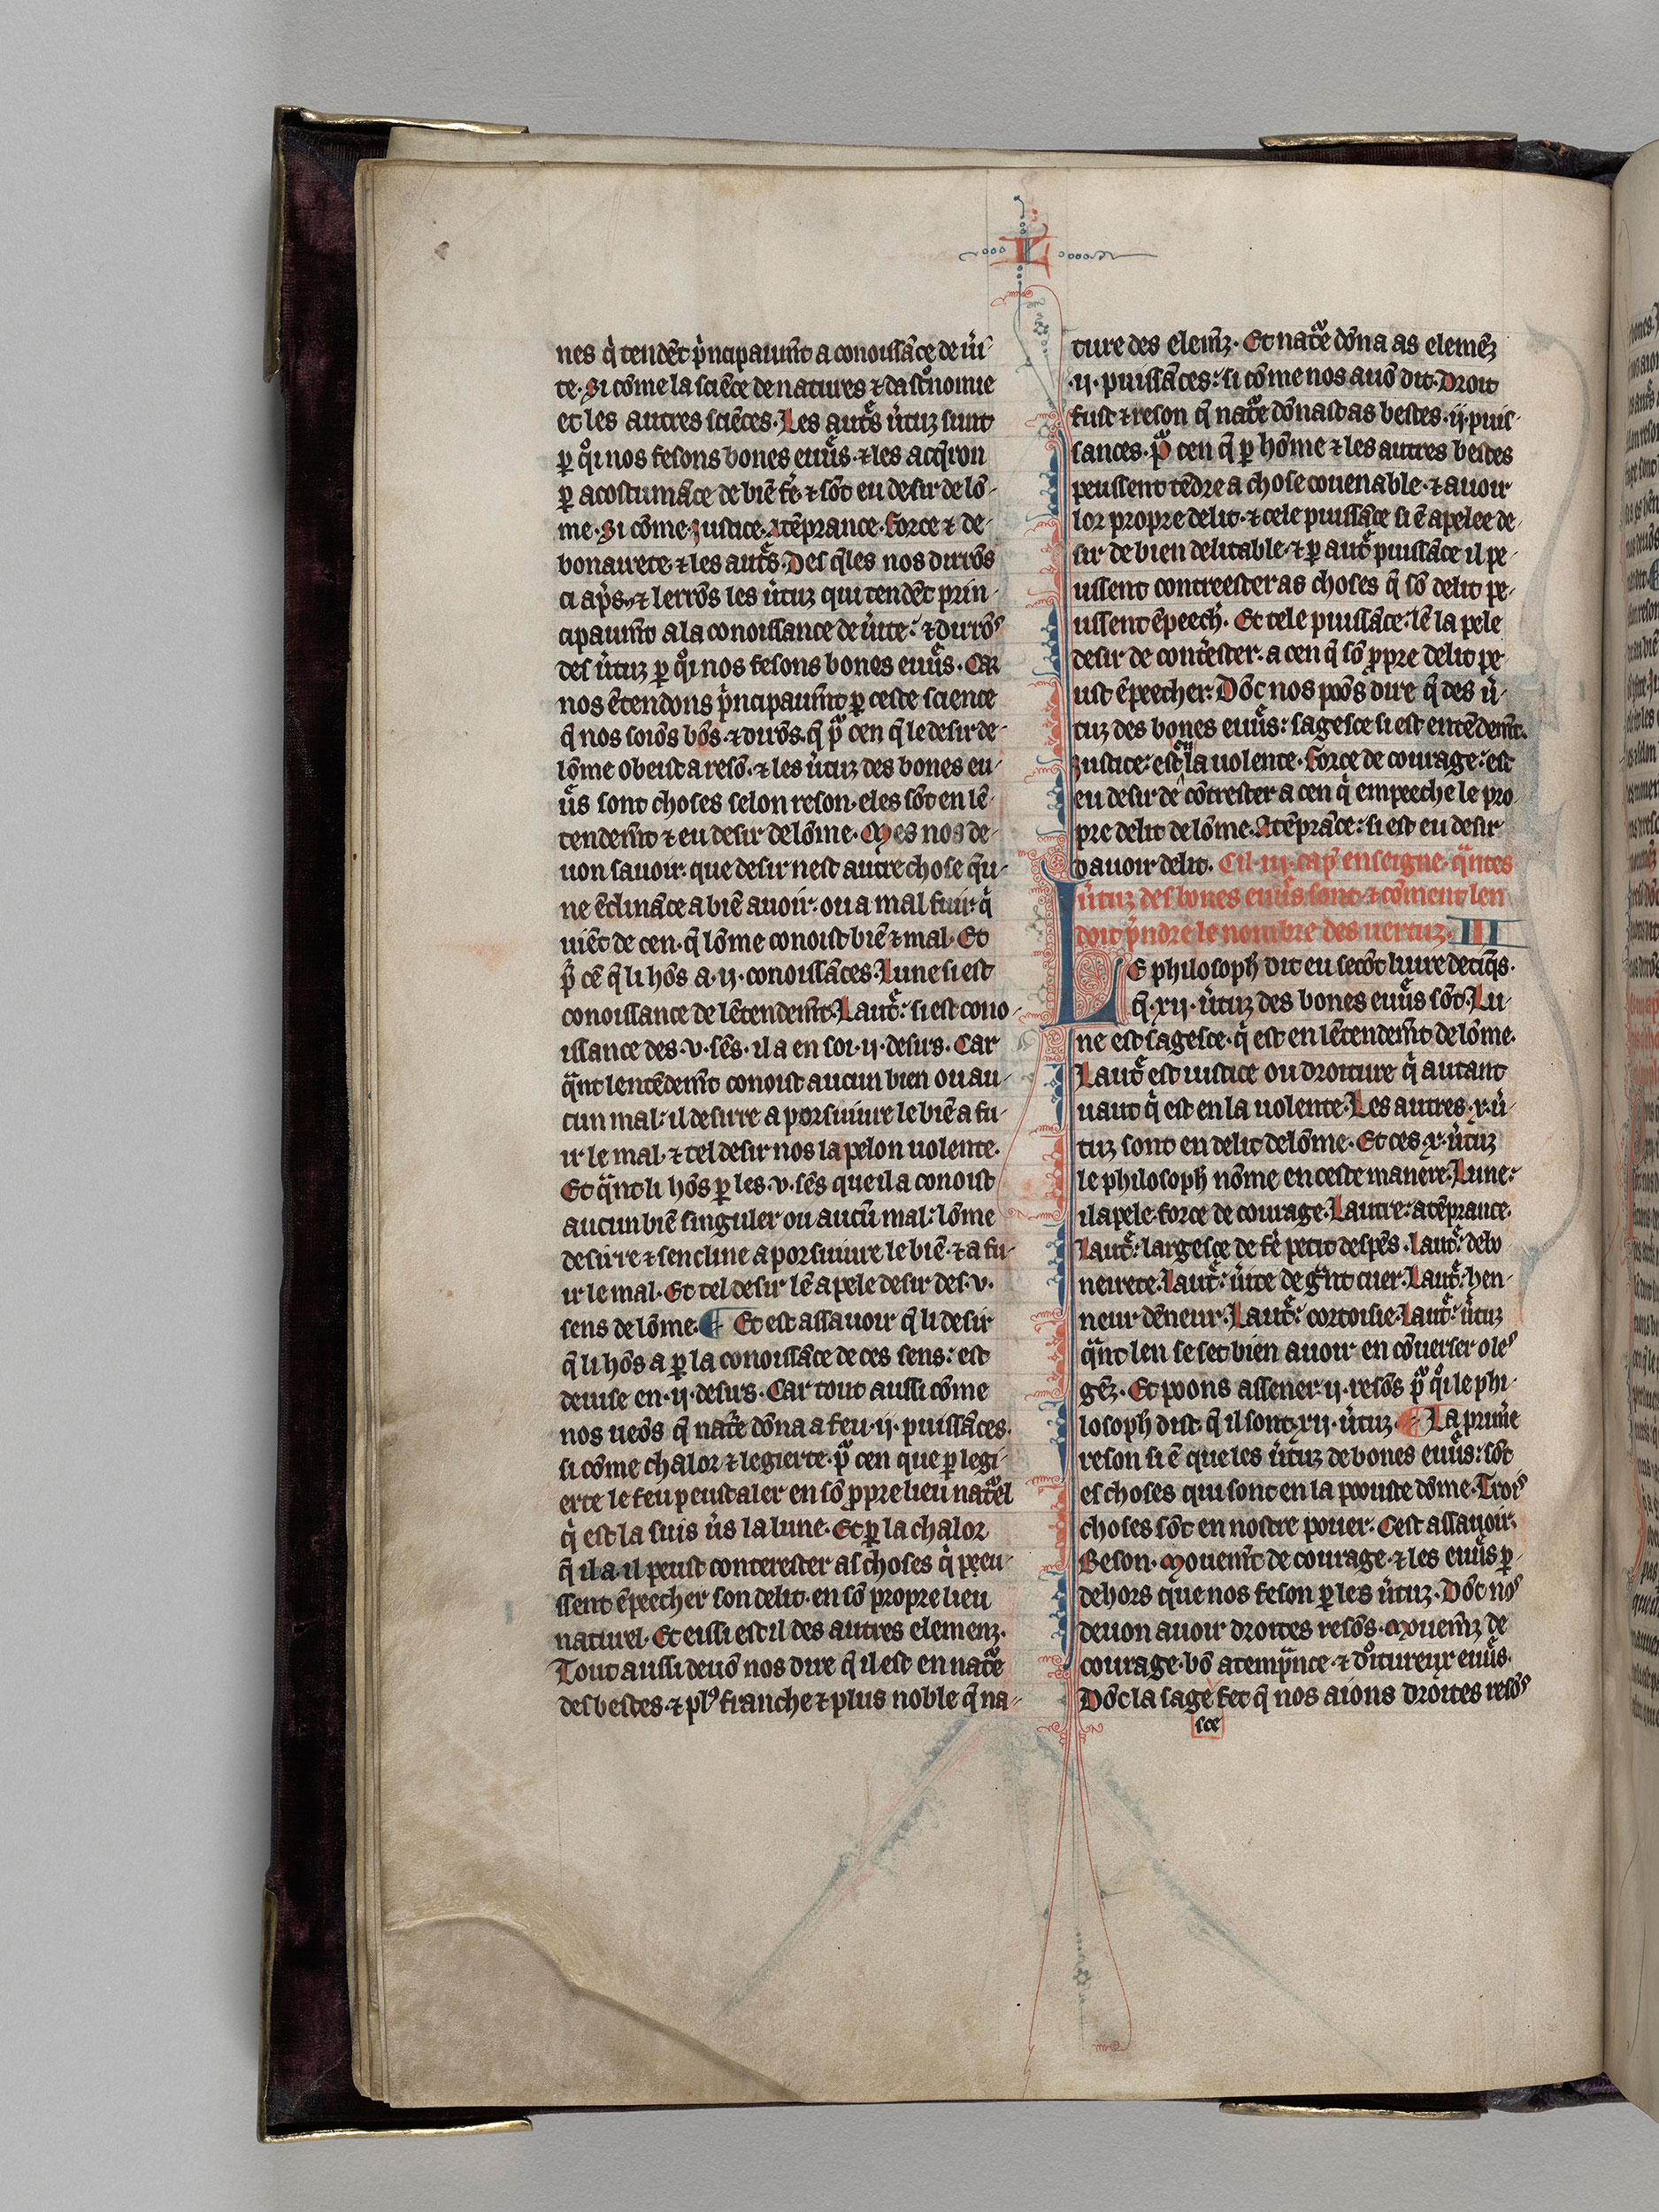 L
nes q̇ tendēt p̍ncipaumt̄ a conoissāce de ui̍
te. Si cōme la sciēce de natures ⁊ dastnͦomie
et les autres sciēces. Les auts̄ u̍tuz sunt
ꝑ qͦi nos fesons bones euuͣs. ⁊ les acq̄ron
ꝑ acostumāce de biē fe̍ ⁊ sōt eu desir de lō-
me. Si cōme. Justice. Atēprance. Force ⁊ de-
bonairete ⁊ les auts̄. Des q̄les nos dirrōs
ci ap̍s. ⁊ lerrōs les u̍tuz qui tendēt prin-
cipaumt̄ a la conoissance de u̍ite: ⁊ dirrōˢ
des u̍tuz ꝑ qͦi nos fesons bones euuͣs. Car
nos ētendons p̍ncipaumt̄ ꝑ ceste science
q̄ nos soiōs bōs. ⁊ dirōs. q̄ pͣ cen q̄ le desir de-
lōme obeist a resō. ⁊ les u̍tuz des bones eu-
uͣs sont choses selon reson. eles sōt en lē-
tendemt̄ ⁊ eu desir delōme. Mes nos de-
uon sauoir. que desir nest autre chose qū-
ne ēclināce a biē auoir. ou a mal fuir. q̇
uiēt de cen. q̄ lōme conoist biē ⁊ mal. Et
p̍ cē q̄ li hōs a .ij. conoissāces. Lune si est
conoissance de lētendemt̄. Laut̄: si est cono-
issance des .v. sēs. il a en soi .ij. desirs. Car
qͣnt lentēdemt̄ conoist aucun bien ou au-
cun mal: il desirre a porsuiure le biē a fu-
ir le mal. ⁊ tel desir nos lapelon uolente.
Et qͣnt li hōs ꝑ les .v. sēs que il a conoist
aucun biē singuler ou aucū mal: lōme
desirre ⁊ sencline a porsuiure le biē. ⁊ a fu-
ir le mal. Et tel desir lē apele desir des .v.
sens de lōme. ¶ Et est assauoir q̄ li desir
q̄ li hōs a ꝑ la conoissāce de ces sens: est
deuise en .ij. desirs. Car tout aussi cōme
nos ueōs q̄ natͬe dōna a feu .ij. puissāces.
si cōme chalor ⁊ legierte. pͣ cen que ꝑ legi-
erte le feu peust aler en sō ꝓpre lieu natͬel
q̇ est la suis u̍s la lune. Et ꝑ la chalor
q̄ il a. il peust conterester as choses q̇ peeu-
ssent ēpeecher son delit. en sō propre lieu
naturel. Et eissi est il des autres elemenz.
Tout aussi deuō nos dire q̄ il est en natͬe
des bestes. ⁊ plꝰ franche ⁊ plus noble q̄ na-
ture des elemz̄. Et natͬe dōna as elemēz
.ij. puissāces: si cōme nos auō dit. Droit
fust ⁊ reson q̄ natͬe dōnast as bestes .ij. puis-
sances. Pͣ cen q̄ ꝑ hōme ⁊ les autres bestes
peussent tēdre a chose couenable. ⁊ auoir
lor propre delit. ⁊ cele puissāce si ē apelee de-
sir de bien delitable. ⁊ ꝑ aut̄ puissāce il pe-
ussent contreester as choses q̄ sō delit pe-
ussent ēpeech̍. Et tele puissāce: lē la pele
desir de cont̍ester. a cen q̄ sō ꝓpre delit pe-
ust ēpeecher: Dōc nos poōs dire q̄ des u̍-
tuz des bones euuͣs: sagesce si est entēdemt̄.
Justice: est en la uolente. Force de courage: est
eu desir de cōtrester a cen q̇ empeeche le pro-
pre delit de lōme. Atēprāce: si est eu desir
dauoir delit. Cil .iij. cap̄ enseigne. qͣntes
u̍tuz des bones euuͣs sont ⁊ cōment len
doit p̍ndre le nombre des uertuz. III
LE philosoph̄ dit eu secōt liure detiq̄s.
q̄ .xij. u̍tuz des bones euuͣs sōt. Lu-
ne est sagesce. q̇ est en lētendemt̄ de lōme.
Laut̄ est iustice ou droiture q̇ autant
uaut q̇ est en la uolente. Les autres .x. u̍-
tuz sont en delit de lōme. Et ces .x. u̍tuz
le philosoph̄ nōme en ceste manere. Lune:
il apele. force de courage. Lautre: atēprance.
Laut̄: largesce de fe̍ petit despēs. Laut̄: debo
neirete. Laut̄: u̍ite de gͣnt cuer. Laut̄: hen-
neur dēneur. Laut̄: cortoisie. Laut̄: u̍tuz
qͣnt len se set bien auoir en cōuerser o leˢ
gēz. Et poons assener .ij. resōs pͣ qͦi le phi-
losoph̄ dist. q̄ il sont .xij. u̍tuz. ¶ La prim̍e
reson si ē que les u̍tuz de bones euuͣs: sōt
es choses qui sont en la poouste dōme. Troiˢ
choses sōt en nostre pouer. Cest assauoir.
Reson. Mouemt̄ de courage. ⁊ les euuͣs ꝑ-
dehors que nos feson ꝑ les u̍tuz. Dōc noˢ
deuon auoir droites resōs. Mouemz̄ de
courage. bō atempͣnce. ⁊ dͦitureux euuͣs.
Dōc la sage fet q̄ nos aions droites resōˢ
sce